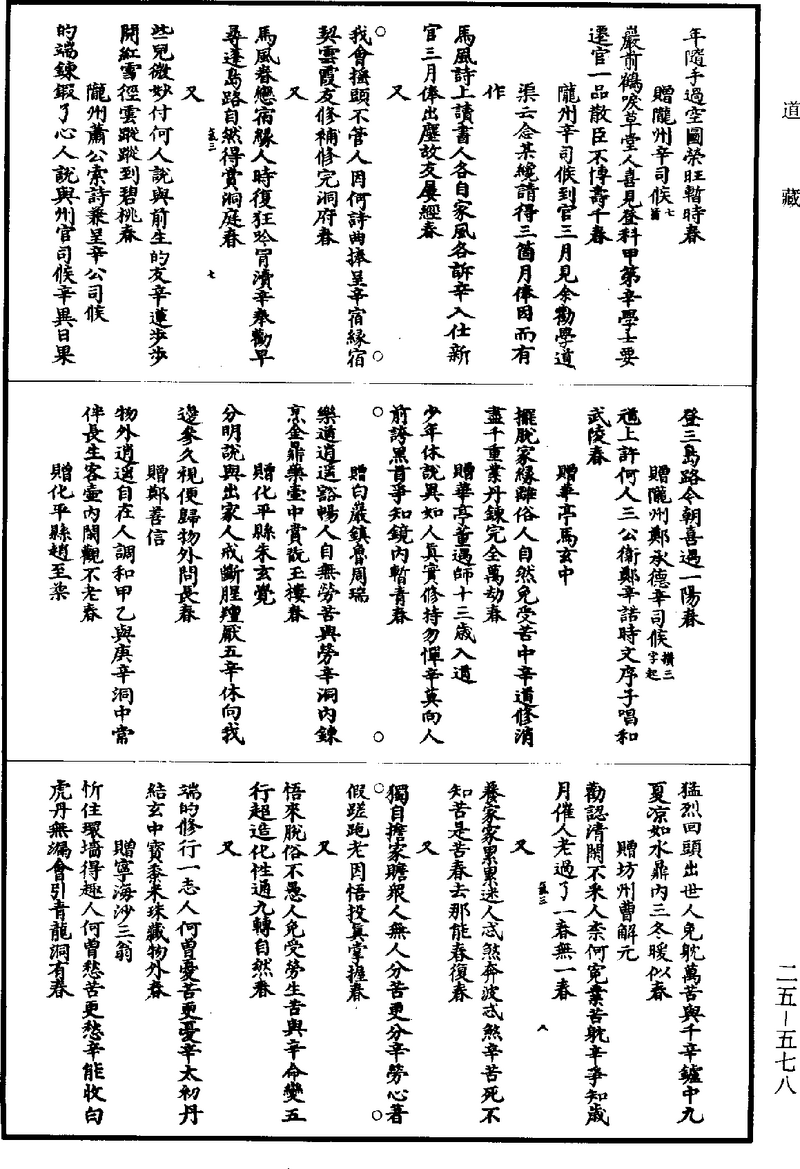 道藏
年隨手過空圖榮旺暫時春
贈隴州辛司候七首
巖前鶴唳草堂人喜見登科甲第辛學士要
遷官一品散臣不博壽千春
隴州辛司候到官三月見余勸學道
渠云念某纔請得三箇月俸因而有
作
馬風詩上讀書人各自家風各訴辛入仕新
官三月俸出塵故友屢經春
又
我會摸頭不管人因何詩曲捧呈辛宿緣宿
契雲霞友修補修完洞府春
又
馬風春戀宿緣人時復狂吟冒瀆辛奉勸早
尋蓬島路自然得賞洞庭春
又
些兒微妙付何人說與前生的友辛蓮步步
開紅雪徑雲蹤蹤到碧桃春
隴州蕭公索詩兼呈辛公司候
的端鍊鍜了心人說與州官司候辛異日果
登三島路今朝喜遇一陽春
贈隴州鄭承德辛司候攢三字起
過上許何人三公衛鄭辛諾時文序子唱和
武陵春
贈華亭馬玄中
擺脫家緣離俗人自然免受苦中辛道修消
盡千重業丹鍊完全萬劫春
贈華亭董遇師十三歲入道
少年休說異如人真實修持勿憚辛莫向人
前誇黑首爭知鏡內暫青春
贈白巖鎮魯周瑞
樂道逍遥豁暢人自無勞苦與勞辛洞內鍊
烹金鼎藥壺中賞翫玉樓春
贈化平縣朱玄覺
分明說與出家人戒斷腥羶厭五辛休向我
邊參久視便歸物外問長春
贈鄭善信
物外逍遥自在人調和甲乙與庚辛洞中常
伴長生客壺內閑觀不老春
贈化平縣趙至柒
猛烈回頭出世人免躭萬苦與千辛鑪中九
夏凉如水鼎內三冬暖似春
贈坊州曹解元
勸認清閑不釆人柰何寃業苦躭辛爭知歲
月催人老過了一春無一春
又
養家家累累迷人忒煞奔波忒煞辛苦死不
知苦是苦春去那能春復春
又
獨自擔家贍衆人無人分苦更分辛勞心著
假蹉跎老因悟投真掌握春
又
悟來脫俗不愚人免受勞生苦與辛命變五
行超造化性通九轉自然春
又
端的修行一志人何曾憂苦更憂辛太初丹
結玄中寶黍米珠藏物外春
贈寧海沙三翁
忻住環墻得趣人何曾愁苦更愁辛能收白
虎丹無漏會引青龍洞有春
二五—五七八